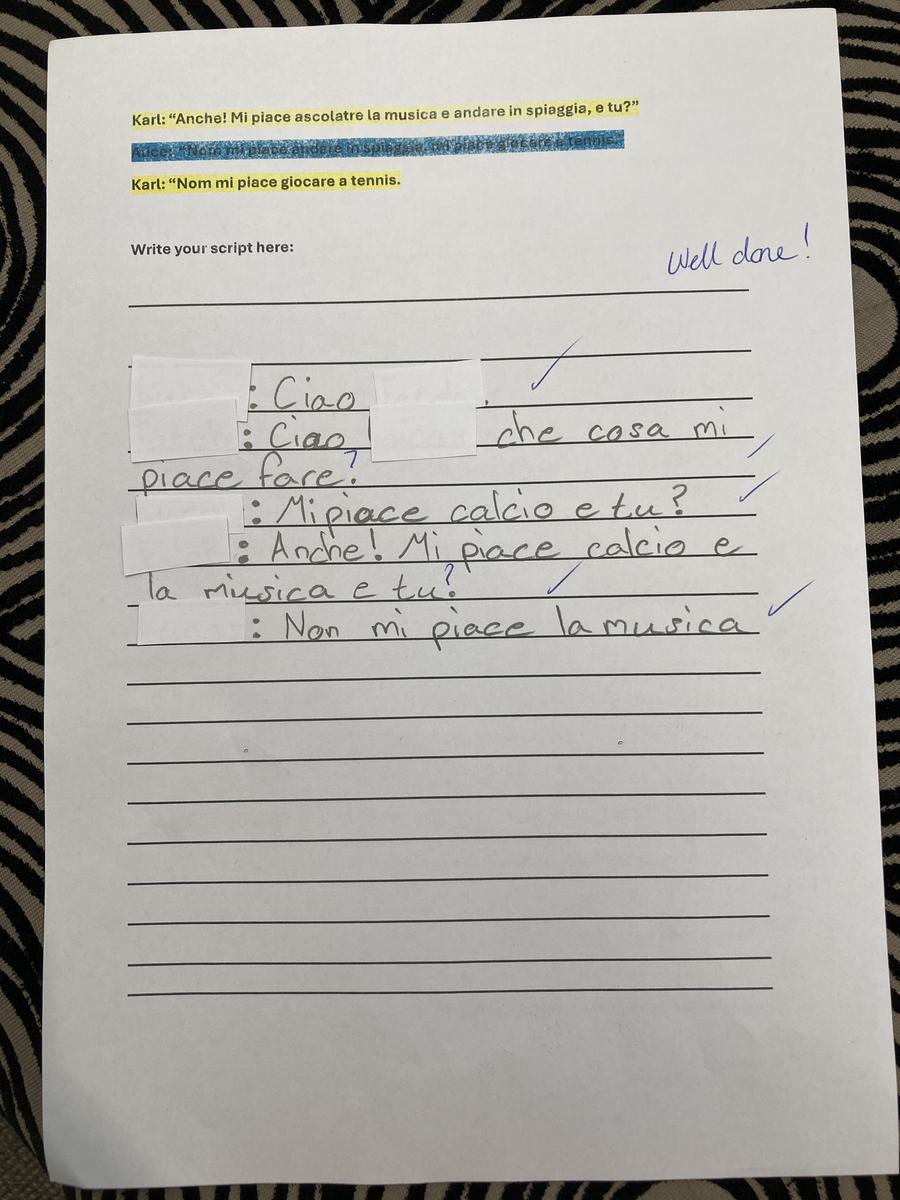 Karl: “Anche! Mi piace ascolatre la musica e andare in spiaggia, e tu?”
Alice: “Nom mi piace andare in spiaggia, mi piace giocare a tennis.
Karl: “Nom mi piace giocare a tennis.
Write your script here:
Well done!
: Ciao .
: Ciao ! che cosa mi
piace fare?
: Mi piace calcio e tu?
: Anche! Mi piace calcio e
la musica e tu?
: Non mi piace la musica